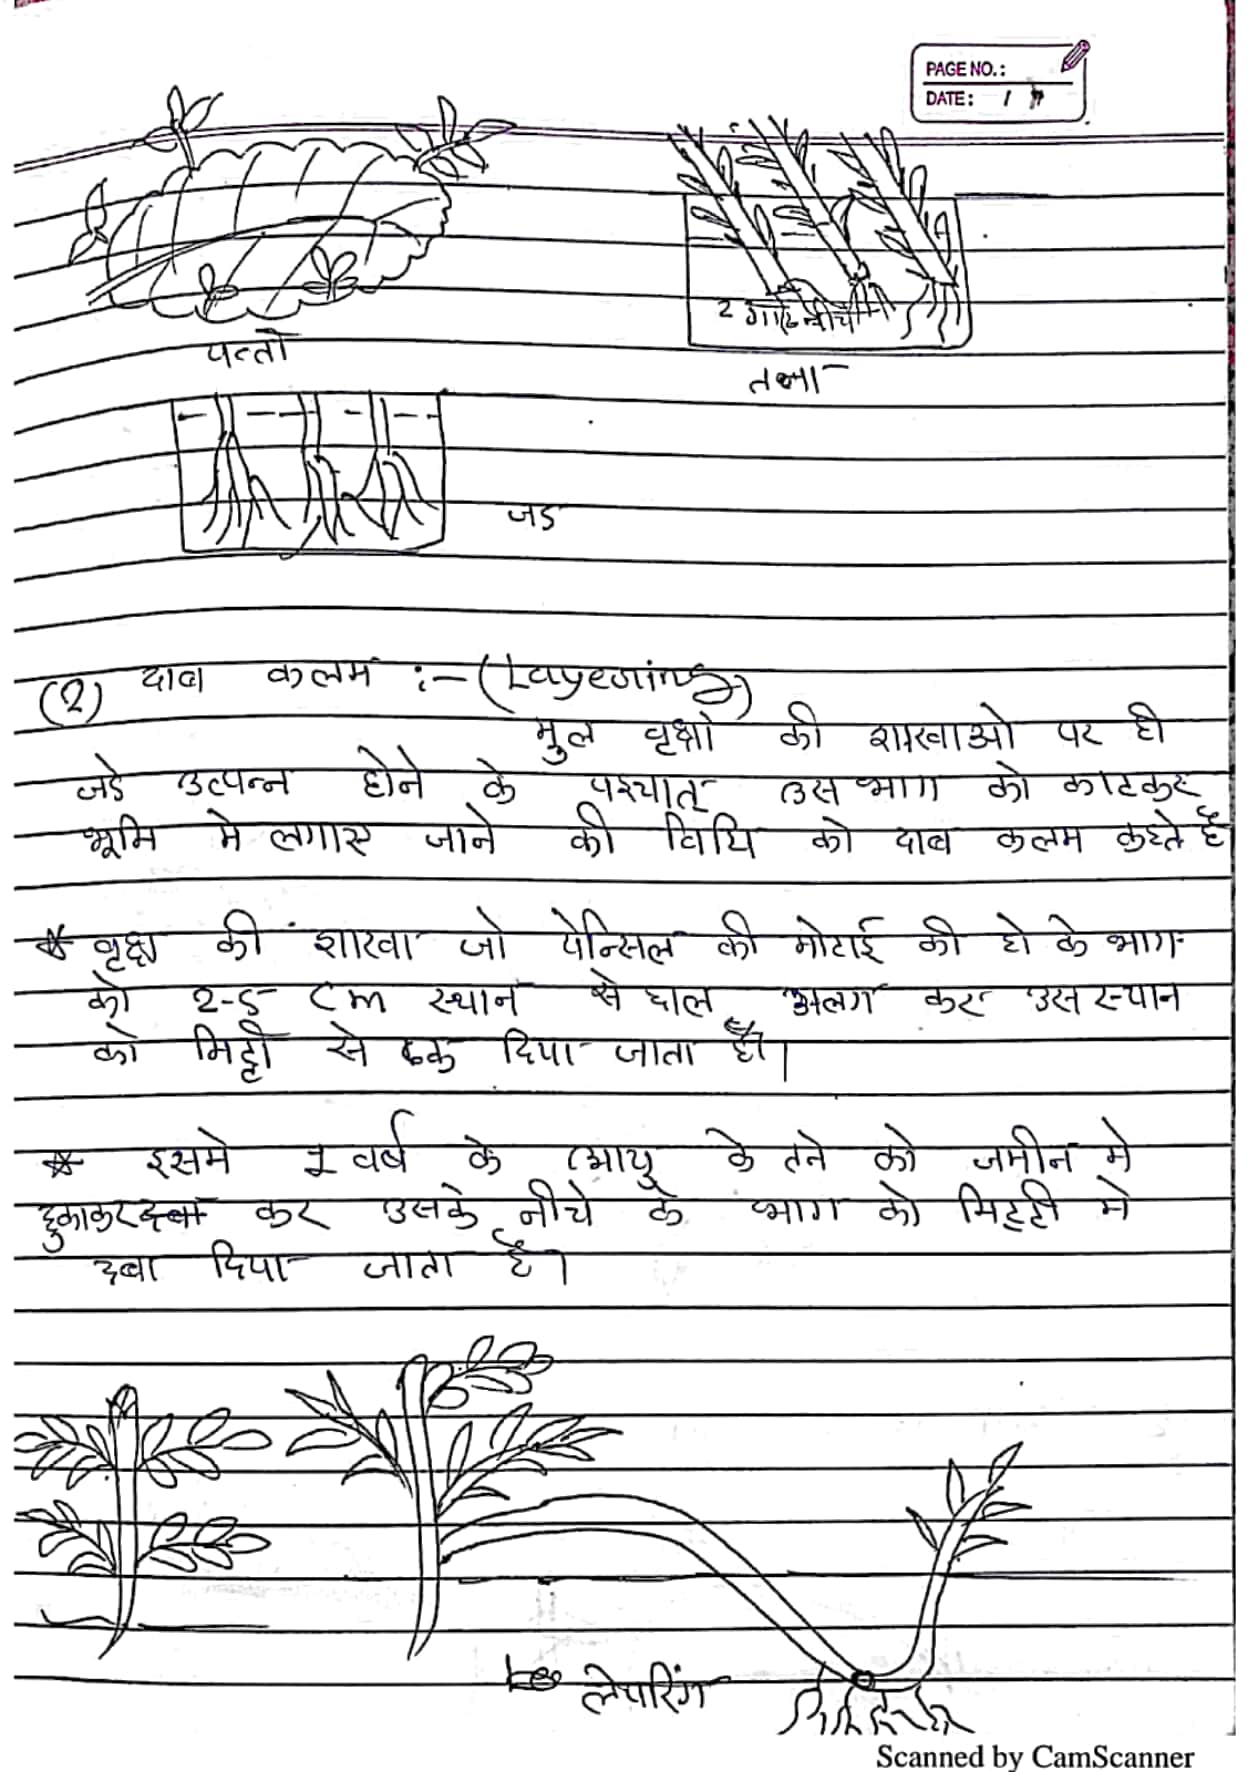 PAGE NO.:
DATE: /
2 गाठ नीचे
पत्ती
तना
जड
(2) दाब कलम :- (Layering)
मुल वृक्षो की शाखाओ पर ही
जडे उत्पन्न होने के पश्यात् उस भाग को काटकर
भूमि मे लगाए जाने की विधि को दाब कलम कहते है
* वृक्ष की शाखा जो पेन्सिल की मोटाई की हो के भाग
को 2-5 cm स्थान से छाल अलग कर उस स्थान
को मिट्टी से ढक दिया जाता है।
* इसमे 1 वर्ष के आयु के तने को जमीन मे
झुकाकर कर उसके नीचे के भाग को मिट्टी मे
दबा दिया जाता है।
लेयरिंग
Scanned by CamScanner